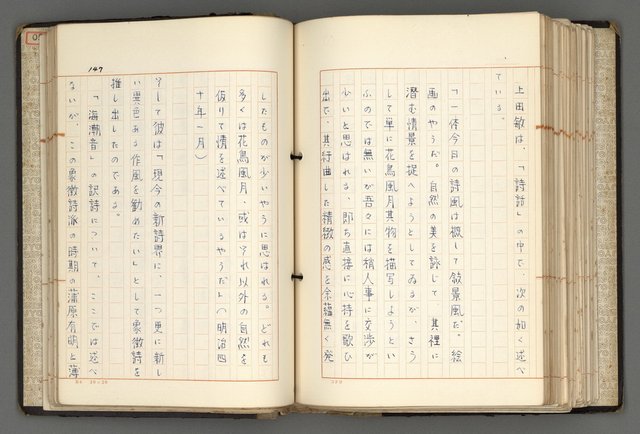 上田敏は、「詩話」の中で、次の如く述べ
ている。
「一体今日の詩風は概して叙景風だ、絵
画のやうだ。自然の美を詠じて、其裡に
潜む情景を捉へようとしてゐるが、さう
して単に花鳥風月其物を描写しようとい
ふのでは無いが吾々には稍人事に交渉が
少いと思はれる、即ち直接に心持を歌ひ
出で、其紆曲した精緻の感を余蘊無く発
147
したものが少いやうに思はれる。どれも
多くは花鳥風月、或はソれ以外の自然を
仮りて情を述べているやうだ」(明治四
十年一月)
そして彼は「現今の新詩界に、一つ更に新し
い異色ある作風を勧めたい」として象徴詩を
推し出したのである。
「海潮音」の訳詩について、ここでは述べ
ないが、この象徴詩派の時期の蒲原有明と薄